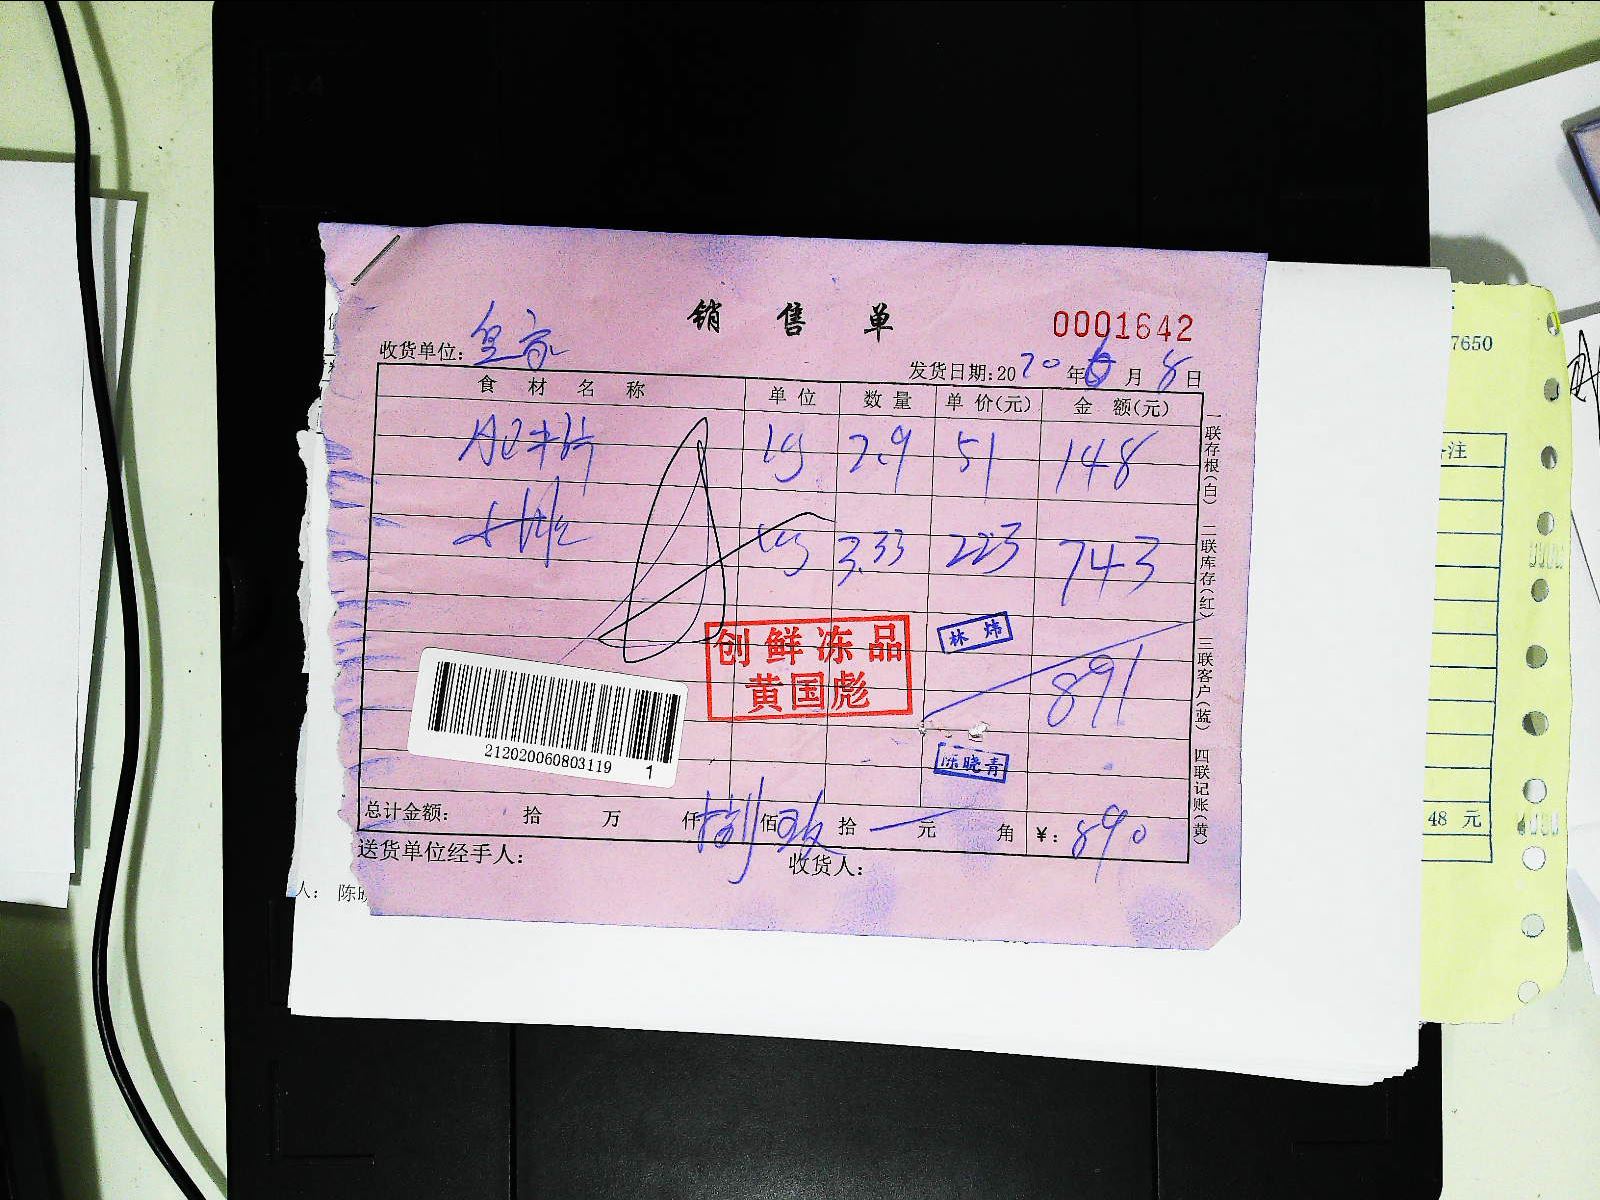 销 售 单
0001642
收货单位: 皇家
发货日期: 2020 年 6 月 8 日
食 材 名 称 单 位 数 量 单 价(元) 金 额(元)
肥牛片 kg 2.9 51 148
kg 3.33 223 743
创鲜冻品
黄国彪
林 炜
891
陈晓青
212020060803119 1
总计金额: 拾 万 仟 捌 佰 玖 拾 元 角 ¥: 890
送货单位经手人: 收货人:
一联存根(白) 二联库存(红) 三联客户(蓝) 四联记账(黄)
人: 陈
7650
注
48 元